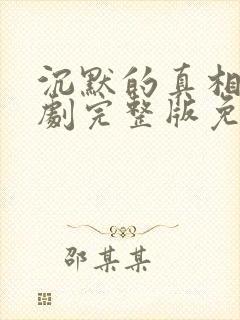 沉默的真相
劇完整版免
邵某某